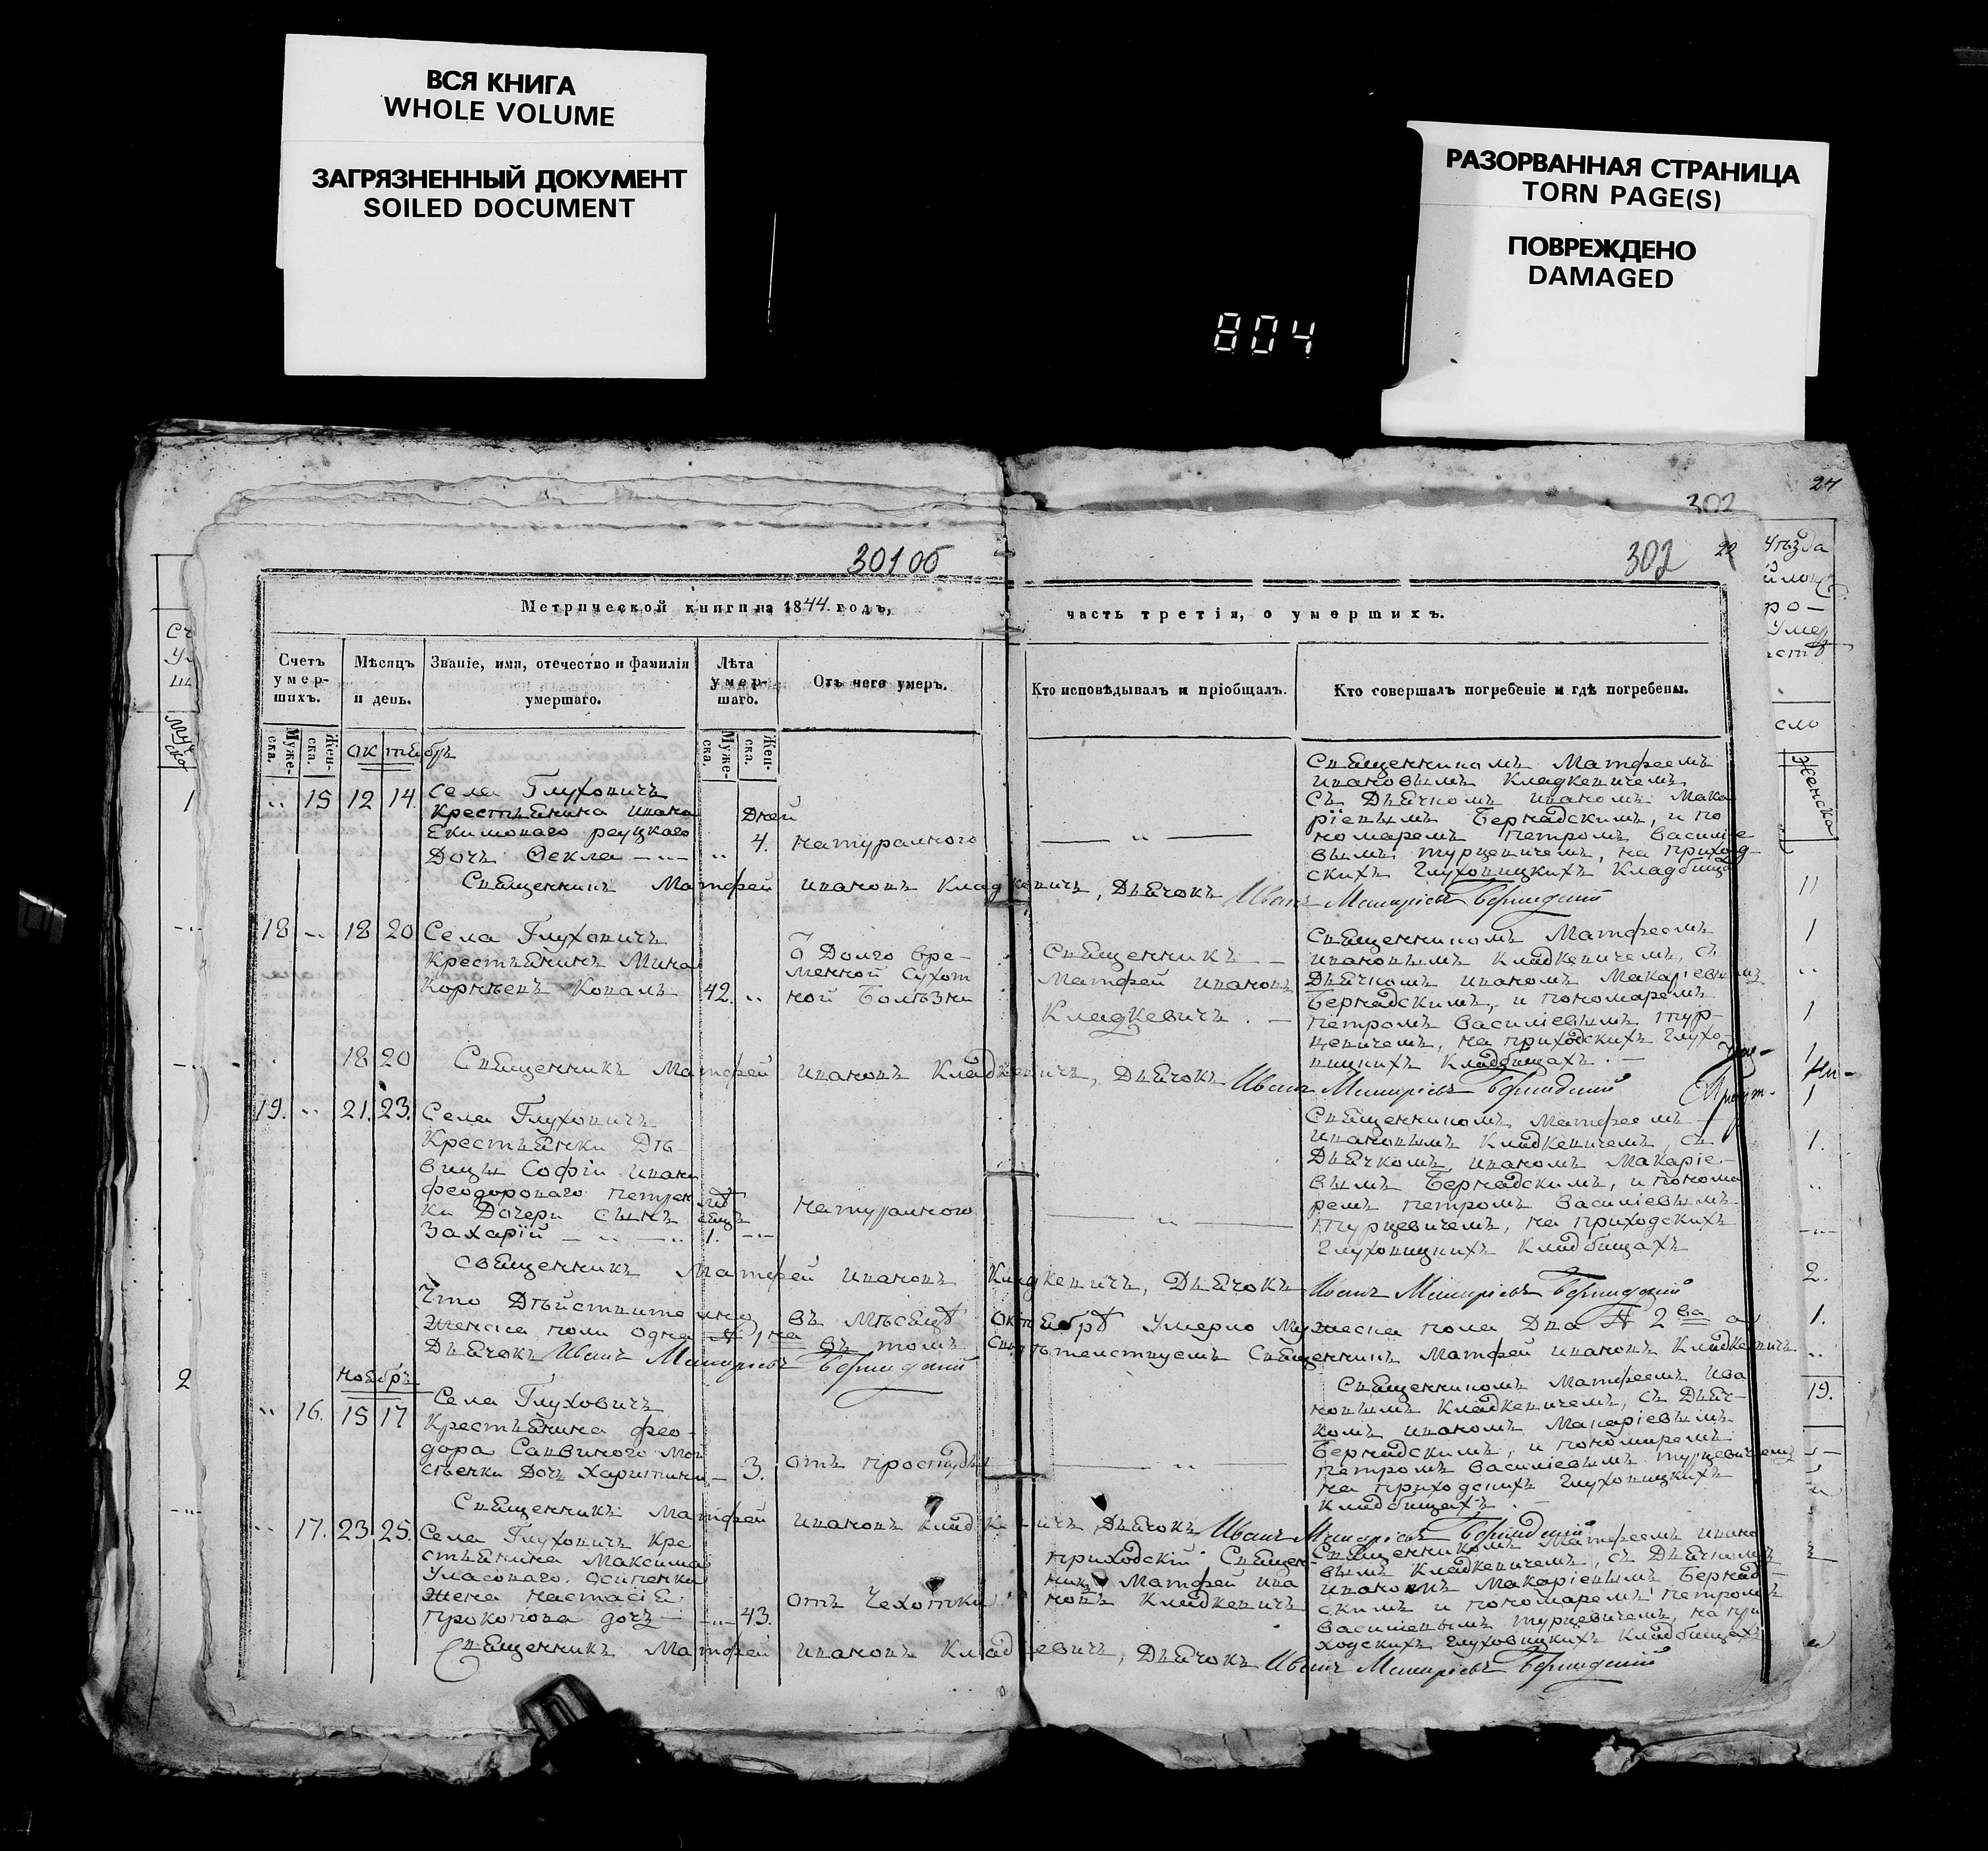 ВСЯ КНИГА
WHOLE VOLUME
ЗАГРЯЗНЕННЫЙ ДОКУМЕНТ
SOILED DOCUMENT
РАЗОРВАННАЯ СТРАНИЦА
TORN PAGE(S)
ПОВРЕЖДЕНО
DAMAGED
804
24
302
301 об
302
22
Метрической книги на 1844 годъ,
часть третія, о умершихъ.
Счетъ умер-шихъ.
Мѣсяцъ и день.
Званіе, имя, отечество и фамилія умершаго.
Лѣта умер-шаго.
Отъ чего умеръ.
Кто исповѣдывалъ и пріобщалъ.
Кто совершалъ погребеніе и гдѣ погребены.
Муже-ска.
Жен-ска.
Муже-ска.
Жен-ска.
октябрь
15 12 14.
Села Глуховичъ
Крестьянина Ивана
Екимоваго Реуцкаго
Дочь Ѳекла
Дней
4.
натуралного
Священникомъ Матфеемъ
Ивановымъ Кладкевичемъ
съ Дьячкомъ Иваномъ Мака
ріевымъ Бернадскимъ, и по
номаремъ Петромъ Василіе
вымъ Турцевичемъ, на приход-
скихъ Глуховицкихъ Кладбищах
Священникъ Матфей Ивановъ Кладкевичъ, Дьячокъ Иванъ Макаріевъ Бернадскій
18 18 20
Села Глуховичъ
Крестьянинъ Мина
Корнѣевъ Коваль
42.
Долго вре-
менной сухот
ной Болѣзни
Священникъ
Матфей Ивановъ
Кладкевичъ
Священникомъ Матфеемъ
Ивановымъ Кладкевичемъ, съ
Дьячкомъ Иваномъ Макаріевымъ
Бернадскимъ, и пономаремъ
Петромъ Василіевымъ Тур-
цевичемъ, на приходскихъ Глухо-
вицкихъ Кладбищахъ
18 20
Священникъ Матфей Ивановъ Кладкевичъ, Дьячокъ Иванъ Макаріевъ Бернадскій
19. 21. 23.
Села Глуховичъ
Крестьянки Дѣ-
вицы Софіи Ивана
Феодороваго Петрен
ки Дочери сынъ
Захарій
1.
натуралного
Священникомъ Матфеемъ
Ивановымъ Кладкевичемъ, съ
Дьячкомъ, Иваномъ Макаріе-
вымъ Бернадскимъ, и понома
ремъ Петромъ Василіевымъ
Турцевичемъ, на приходскихъ
Глуховицкихъ Кладбищахъ
Священникъ Матфей Ивановъ Кладкевичъ, Дьячокъ Иванъ Макаріевъ Бернадскій
Что Дѣйствително въ мѣсяцѣ октябрѣ Умерло мужеска пола Два 2 ва а
женска пола одна 1 на въ томъ свидѣтелствуемъ Священникъ Матфей Ивановъ Кладкевичъ
Дьячокъ Иванъ Макаріевъ Бернадскій
ноябрь
16. 15 17
Села Глуховичъ
Крестьянина Фео-
дора Саввиного
Дочь Харитина
3.
отъ простуды
Священникомъ Матфеемъ Ива
новымъ Кладкевичемъ, съ Дьяч-
комъ Иваномъ Макаріевымъ
Бернадскимъ, и пономаремъ
Петромъ Василіевымъ Турцевичемъ
на приходскихъ Глуховицкихъ
Кладбищахъ
Священникъ Матфей Ивановъ Кладкевичъ, Дьячокъ Иванъ Макаріевъ Бернадскій
17. 23. 25.
Села Глуховичъ Кре
стьянина Максима
Уласоваго Осипенка
жена Настасія
Прокопова дочь
43.
отъ Чехотки
приходскій Священ-
никъ Матфей Ива
новъ Кладкевичъ
Священникомъ Матфеемъ Ивано
вымъ Кладкевичемъ, съ Дьячкомъ
Иваномъ Макаріевымъ Бернад-
скимъ и пономаремъ Петромъ
Василіевымъ Турцевичемъ, на при
ходскихъ Глуховицкихъ Кладбищахъ
Священникъ Матфей Ивановъ Кладкевичъ, Дьячокъ Иванъ Макаріевъ Бернадскій